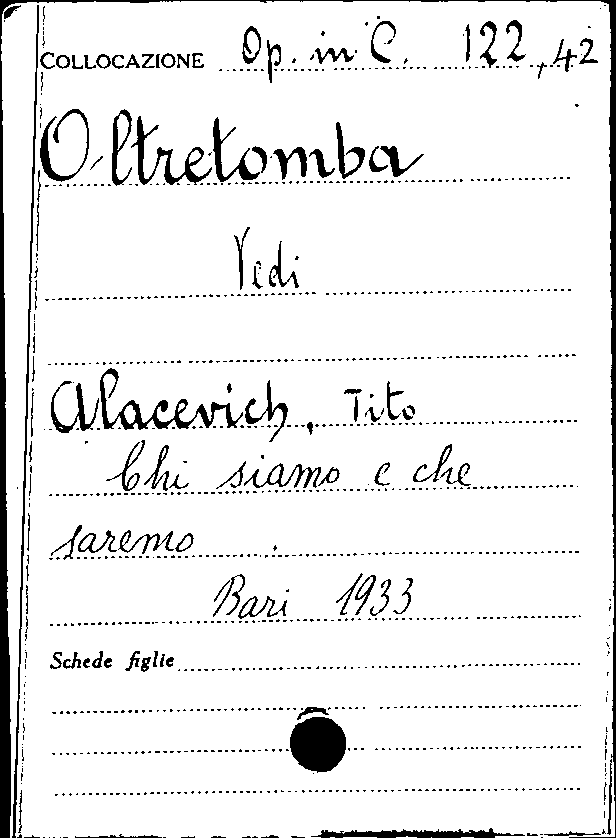 COLLOCAZIONE Op. in C. 122,42
Oltretomba
Vedi
Alacevich, Tito
Chi siamo e che
saremo.
Bari 1933
Schede figlie